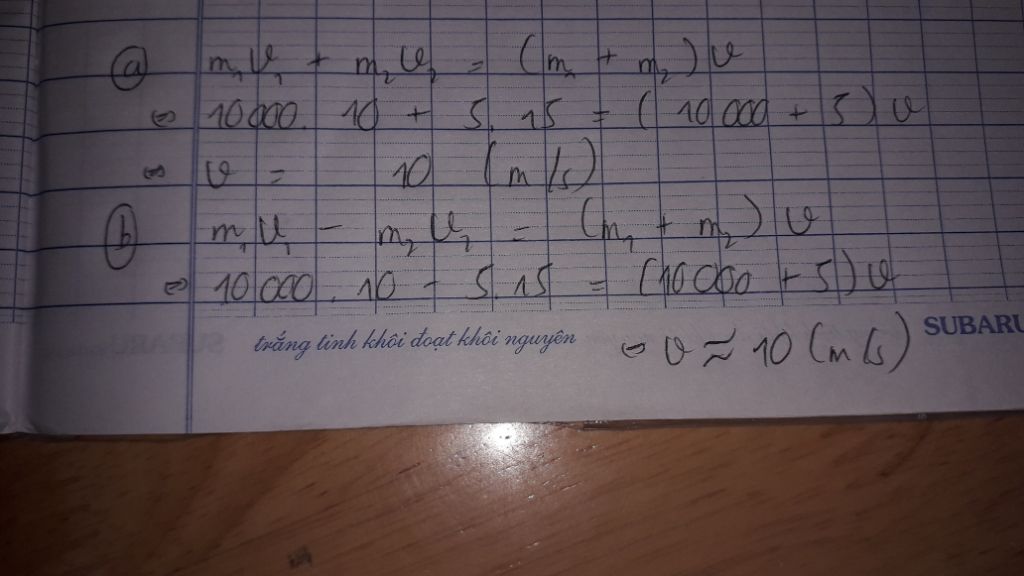 (a) m₁v₁ + m₂v₂ = (m₁ + m₂)v
⇔ 10 000. 10 + 5. 15 = (10 000 + 5)v
⇔ v = 10 (m/s)
(b) m₁v₁ - m₂v₂ = (m₁ + m₂)v
⇔ 10 000. 10 - 5. 15 = (10 000 + 5)v
trắng tinh khôi đoạt khôi nguyên
SUBARU
⇔ v ≈ 10 (m/s)